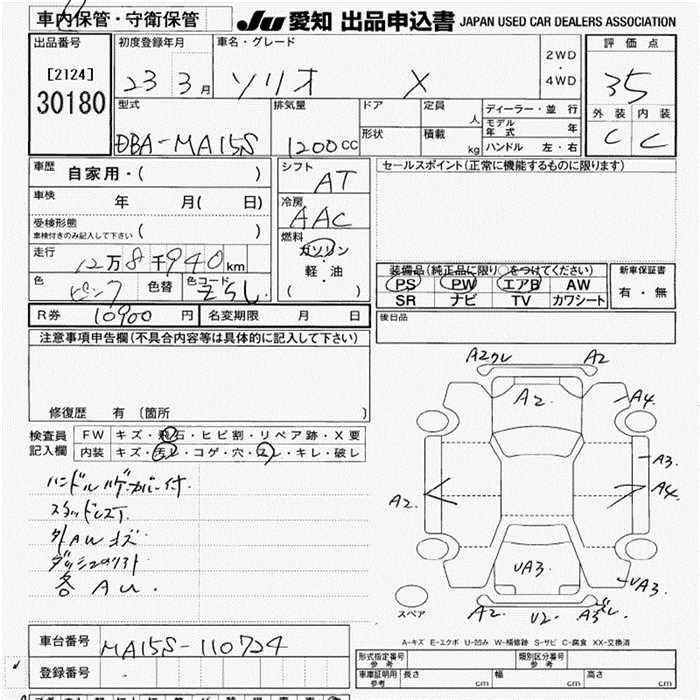 車内保管・守衛保管
JU 愛知 出品申込書 JAPAN USED CAR DEALERS ASSOCIATION
出品番号
[2124]
30180
初度登録年月
23 3月
車名・グレード
ソリオ X
2WD
・
4WD
評価点
35
外装 内装
C C
型式
DBA-MA15S
排気量
1200CC
ドア
形状
定員 人
積載 kg
ディーラー・並行
モデル年式 年
ハンドル 左・右
車歴 自家用・( )
車検 年 月( 日)
受検形態
車検付きのみ記入して下さい ( )
走行 12万8千940km
色 ピンク 色替 色コード
シフト AT
冷房 AAC
燃料
ガソリン
・
軽・油
( )
セールスポイント(正常に機能するものに限ります)
装備品(純正品に限り○をつけてください)
PS PW エアB AW
SR ナビ TV カワシート
新車保証書
有・無
R券 10900円 名変期限 月 日
後日品
注意事項申告欄(不具合内容等は具体的に記入して下さい)
修復歴 有 (箇所 )
検査員記入欄
FW キズ・飛石・ヒビ割・リペア跡・X要
内装 キズ・汚レ・コゲ・穴・スレ・キレ・破レ
外AUキズ
各AU.
A2 A2
A2.
A4.
A3.
A4.
A2.
UA3.
UA3.
A2. U2.
スペア
A-キズ E-エクボ U-凹み W-補修跡 S-サビ C-腐食 XX-交換済
車台番号 MA15S-110724
登録番号 -
型式指定番号 参考
類別区分番号 参考
車庫証明用 参考 長さ cm 幅 cm 高さ cm